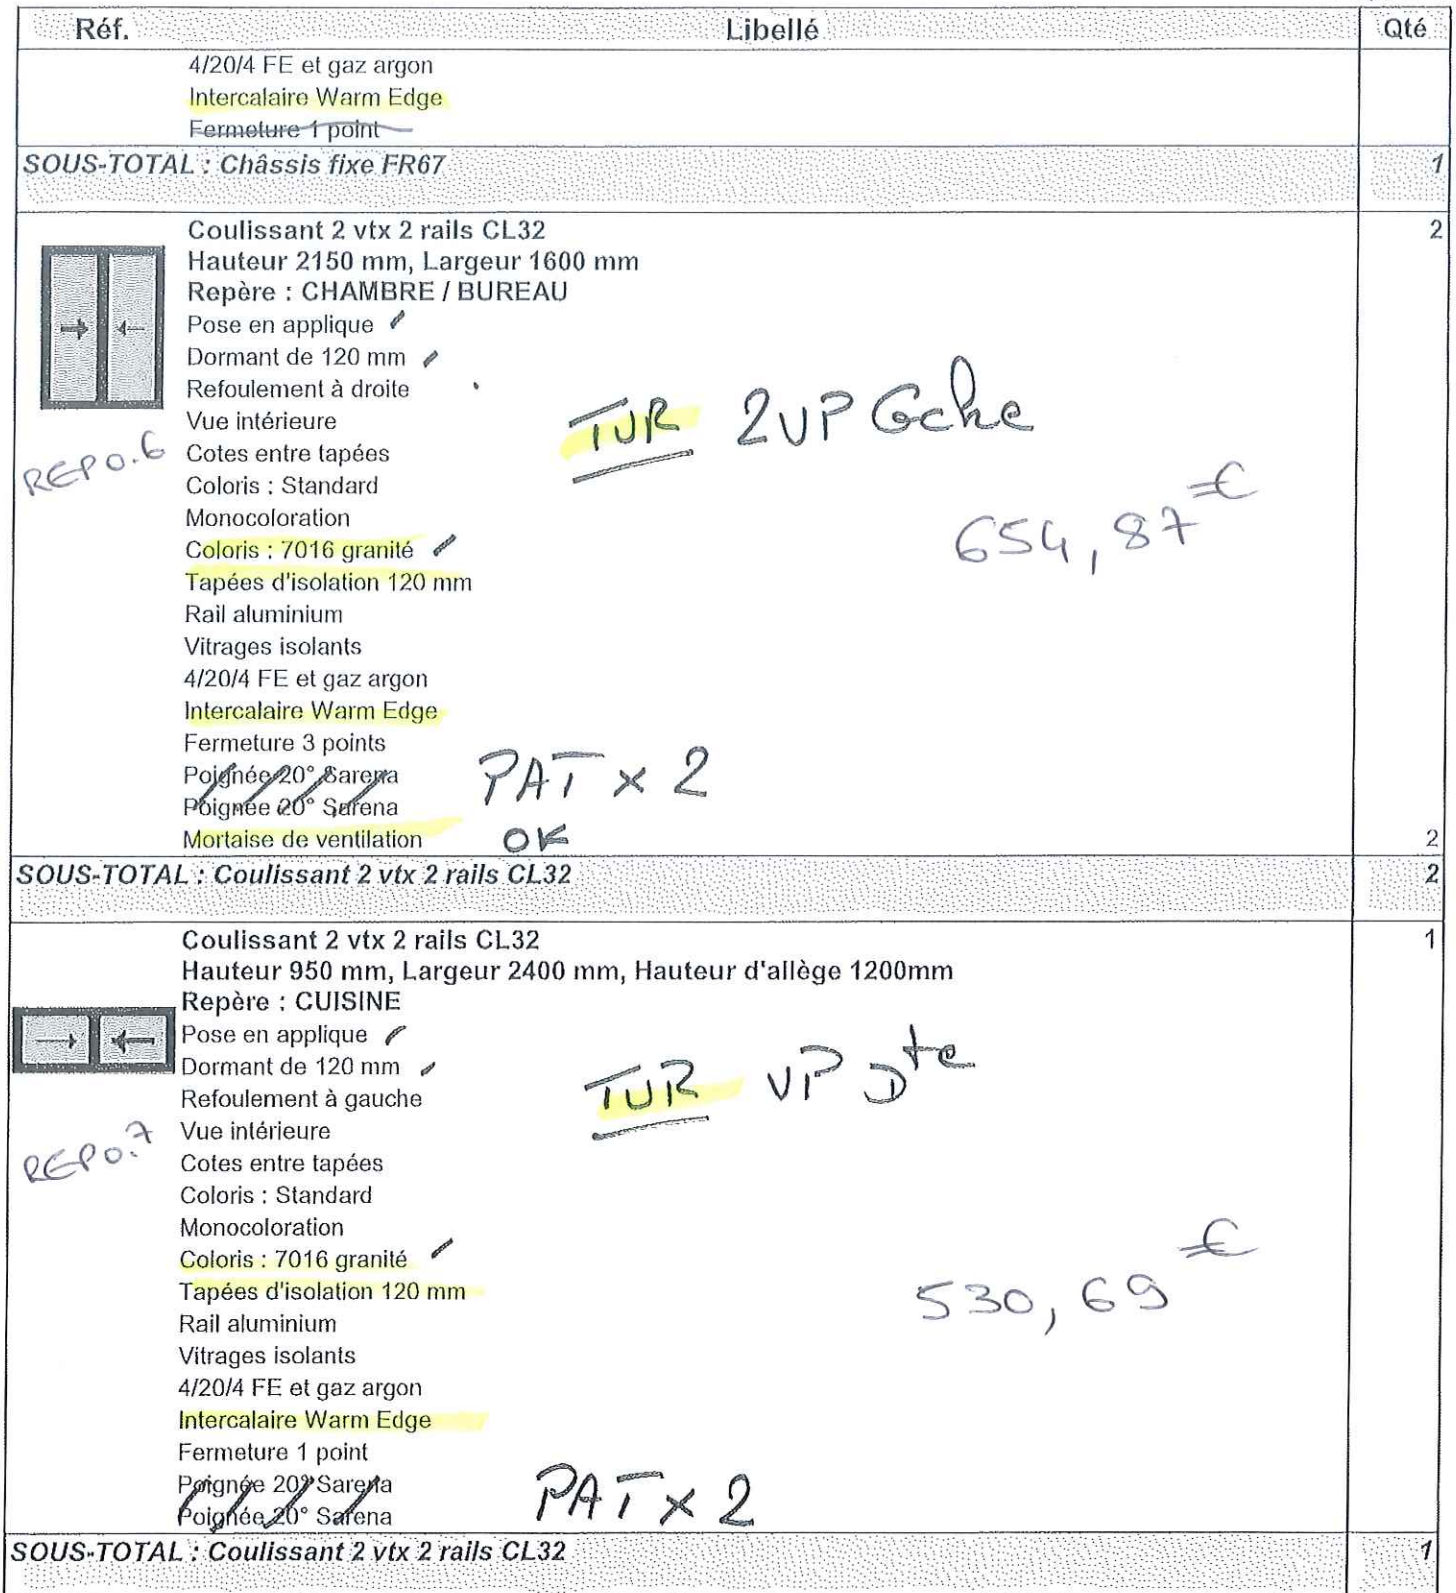 Réf. Libellé Qté
4/20/4 FE et gaz argon
Intercalaire Warm Edge
Fermeture 1 point
SOUS-TOTAL : Châssis fixe FR67 1
Coulissant 2 vtx 2 rails CL32 2
Hauteur 2150 mm, Largeur 1600 mm
Repère : CHAMBRE / BUREAU
Pose en applique
Dormant de 120 mm
Refoulement à droite
TUR 2VP Gche
Vue intérieure
REPO.6 Cotes entre tapées
Coloris : Standard
654,87 €
Monocoloration
Coloris : 7016 granité
Tapées d'isolation 120 mm
Rail aluminium
Vitrages isolants
4/20/4 FE et gaz argon
Intercalaire Warm Edge
Fermeture 3 points
Poignée 20° Sarena PAT x 2
Poignée 20° Sarena
Mortaise de ventilation OK 2
SOUS-TOTAL : Coulissant 2 vtx 2 rails CL32 2
Coulissant 2 vtx 2 rails CL32 1
Hauteur 950 mm, Largeur 2400 mm, Hauteur d'allège 1200mm
Repère : CUISINE
Pose en applique
Dormant de 120 mm
TUR VP Dte
Refoulement à gauche
Vue intérieure
REPO.7 Cotes entre tapées
Coloris : Standard
Monocoloration
Coloris : 7016 granité
530,69 €
Tapées d'isolation 120 mm
Rail aluminium
Vitrages isolants
4/20/4 FE et gaz argon
Intercalaire Warm Edge
Fermeture 1 point
Poignée 20° Sarena PAT x 2
Poignée 20° Sarena
SOUS-TOTAL : Coulissant 2 vtx 2 rails CL32 1